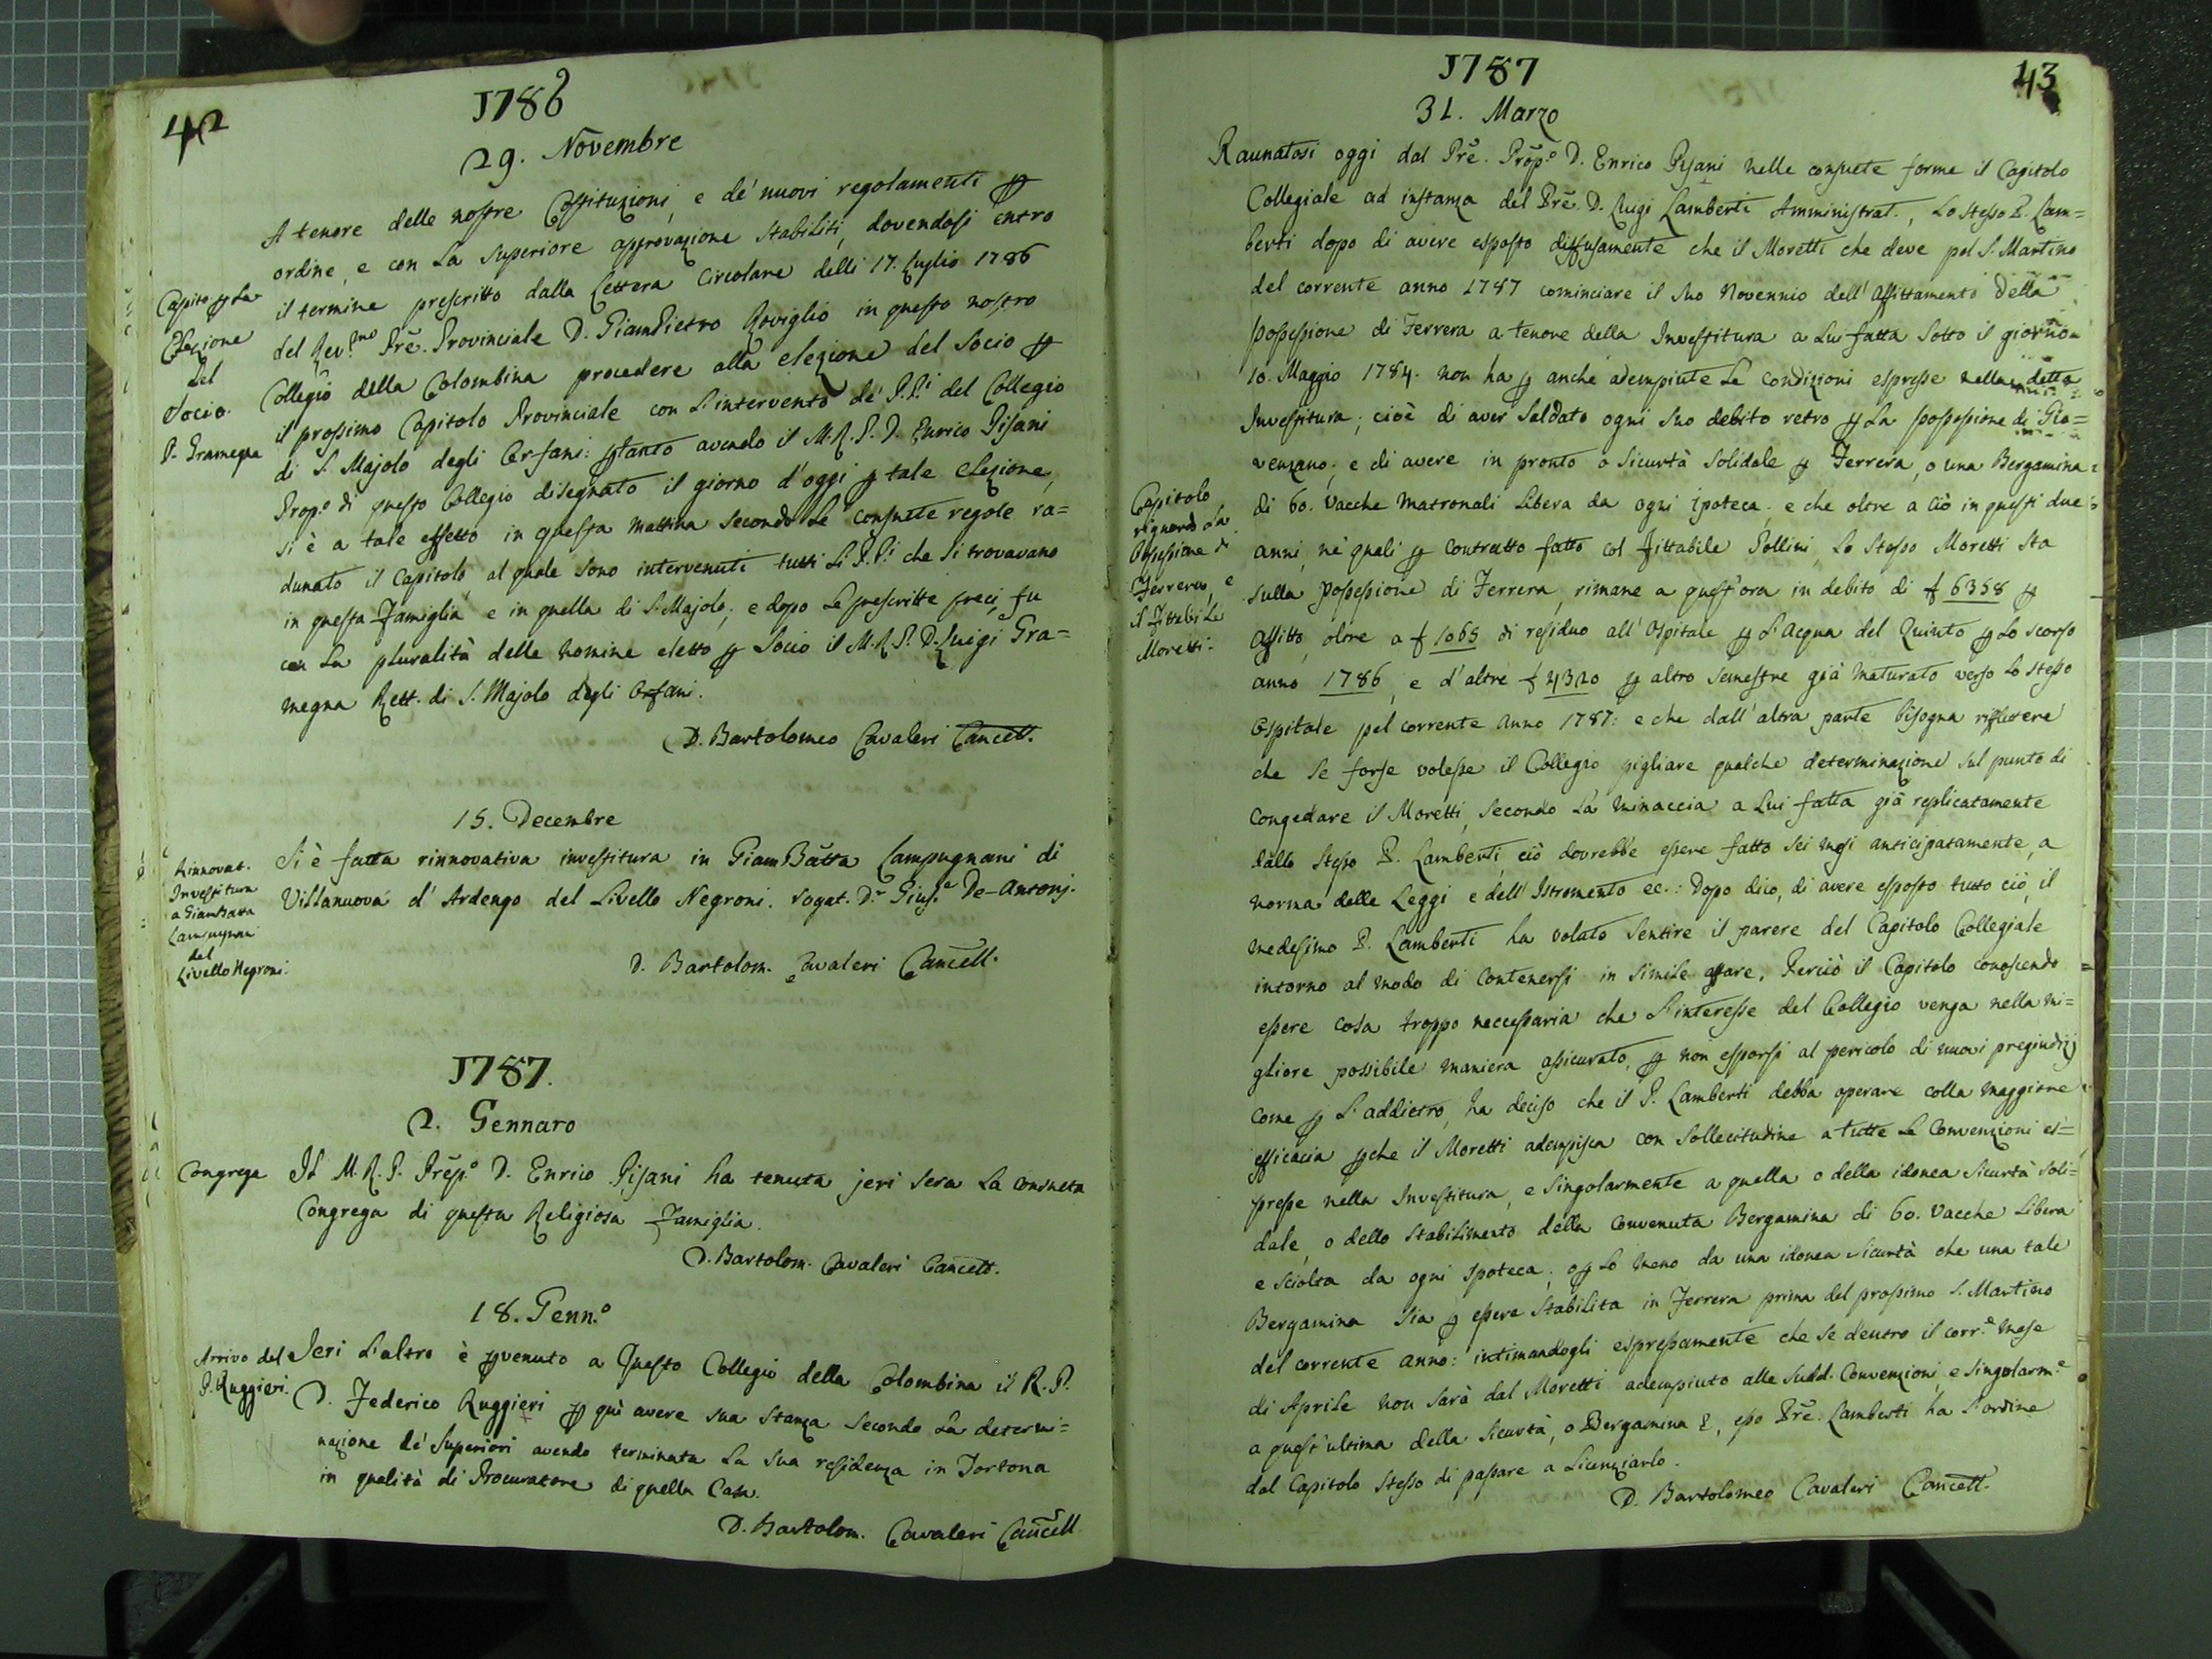 42
1786
29. Novembre
A tenore delle nostre Costituzioni, e de' nuovi regolamenti per
ordine, e con la superiore approvazione stabiliti, dovendosi entro
il termine prescritto dalla Lettera Circolare delli 17. Luglio 1786
del Rev.mo Prē. Provinciale D. GiamPietro Roviglio in questo nostro
Collegio della Colombina procedere alla elezione del Socio per
il prossimo Capitolo Provinciale con l'intervento de' P.P.i del Collegio
di S. Majolo degli Orfani: pertanto avendo il M.R.P.D. Enrico Pisani
Prop.o di questo Collegio disegnato il giorno d'oggi per tale elezione,
si è a tale effetto in questa mattina secondo le consuete regole ra=
dunato il Capitolo, al quale sono intervenuti tutti li P.P.i che si trovavano
in questa Famiglia e in quella di S. Majolo; e dopo le prescritte preci fu
con la pluralità delle nomine eletto per Socio il M.R.P.D. Luigi Gra=
megna Rett. di S. Majolo degli Orfani.
D. Bartolomeo Cavaleri Cancell.
Capito per la
Elezione
del
Socio.
P. Gramegna
15. Decembre
Si è fatta rinnovativa investitura in GiamBatta Campugnani di
Villanuova d'Ardengo del Livello Negroni. rogat. D.r Gius.e De-Antonj.
D. Bartolom. Cavaleri Cancell.
Rinnovat.
Investitura
a Giambatta
Campugnani
del
Livello Negroni.
1787.
2. Gennaro
Congrega
Il M.R.P. Prep.o D. Enrico Pisani ha tenuta jeri sera la consueta
Congrega di questa Religiosa Famiglia.
D. Bartolom. Cavaleri Cancell.
18. Genn.o
Arrivo del
P. Ruggieri.
Jeri l'altro è pervenuto a questo Collegio della Colombina il R.P.
D. Federico Ruggieri per quì avere sua stanza secondo la determi=
nazione de' Superiori avendo terminata la sua residenza in Tortona
in qualità di Procuratore di quella Casa.
D. Bartolom. Cavaleri Cancell
43
1787
31. Marzo
Raunatosi oggi dal Prē. Prōp.o D. Enrico Pisani nelle consuete forme il Capitolo
Collegiale ad instanza del Prē. D. Luigi Lamberti Amministrat., lo stesso P. Lam=
berti dopo di avere esposto diffusamente che il Moretti che deve pel S. Martino
del corrente anno 1787 cominciare il suo Novennio dell'Affittamento della
possessione di Ferrera a tenore della Investitura a lui fatta sotto il giorno
10. Maggio 1784. non ha per anche adempiute le condizioni espresse nella detta
Investitura; cioè di aver saldato ogni suo debito retro per la possessione di Gio=
venzano; e di avere in pronto o sicurtà solidale per Ferrera, o una Bergamina
di 60. Vacche matronali libera da ogni ipoteca; e che oltre a ciò in questi due
anni, ne' quali per contratto fatto col fittabile Pollini, lo stesso Moretti sta
sulla possessione di Ferrera, rimane a quest'ora in debito di £ 6358 per
affitto, oltre a £ 1065 di residuo all'Ospitale per l'acqua del Quinto per lo scorso
anno 1786, e d'altre £ 4320 per altro semestre già maturato verso lo stesso
Ospitale pel corrente anno 1787: e che dall'altra parte bisogna riflettere
che se forse volesse il Collegio pigliare qualche determinazione sul punto di
congedare il Moretti, secondo la minaccia a lui fatta già replicatamente
dallo stesso P. Lamberti, ciò dovrebbe essere fatto sei mesi anticipatamente, a
norma delle Leggi e dell'Istromento ec.: Dopo dico, di avere esposto tutto ciò, il
medesimo P. Lamberti ha voluto sentire il parere del Capitolo Collegiale
intorno al modo di contenersi in simile affare. Perciò il Capitolo conoscendo
essere cosa troppo neccessaria che l'interesse del Collegio venga nella mi=
gliore possibile maniera assicurato, per non esporsi al pericolo di nuovi pregiudizj
come per l'addietro, ha deciso che il P. Lamberti debba operare colla maggiore
efficacia perche il Moretti adempisca con sollecitudine a tutte le Convenzioni es=
presse nella Investitura, e singolarmente a quella o della idonea sicurtà soli=
dale, o dello stabilimento della convenuta Bergamina di 60. Vacche libera
e sciolta da ogni ipoteca; o per lo meno da una idonea sicurtà che una tale
Bergamina sia per essere stabilita in Ferrera prima del prossimo S. Martino
del corrente anno: intimandogli espressamente che se dentro il corr.e mese
di Aprile non sarà dal Moretti adempiuto alle sudd. Convenzioni, e singolarm.e
a quest'ultima della sicurtà, o Bergamina &, esso Prē. Lamberti ha l'ordine
dal Capitolo stesso di passare a licenziarlo.
D. Bartolomeo Cavaleri Cancell.
Capitolo
riguardo la
Possessione di
Ferrera, e
il Fittabile
Moretti.